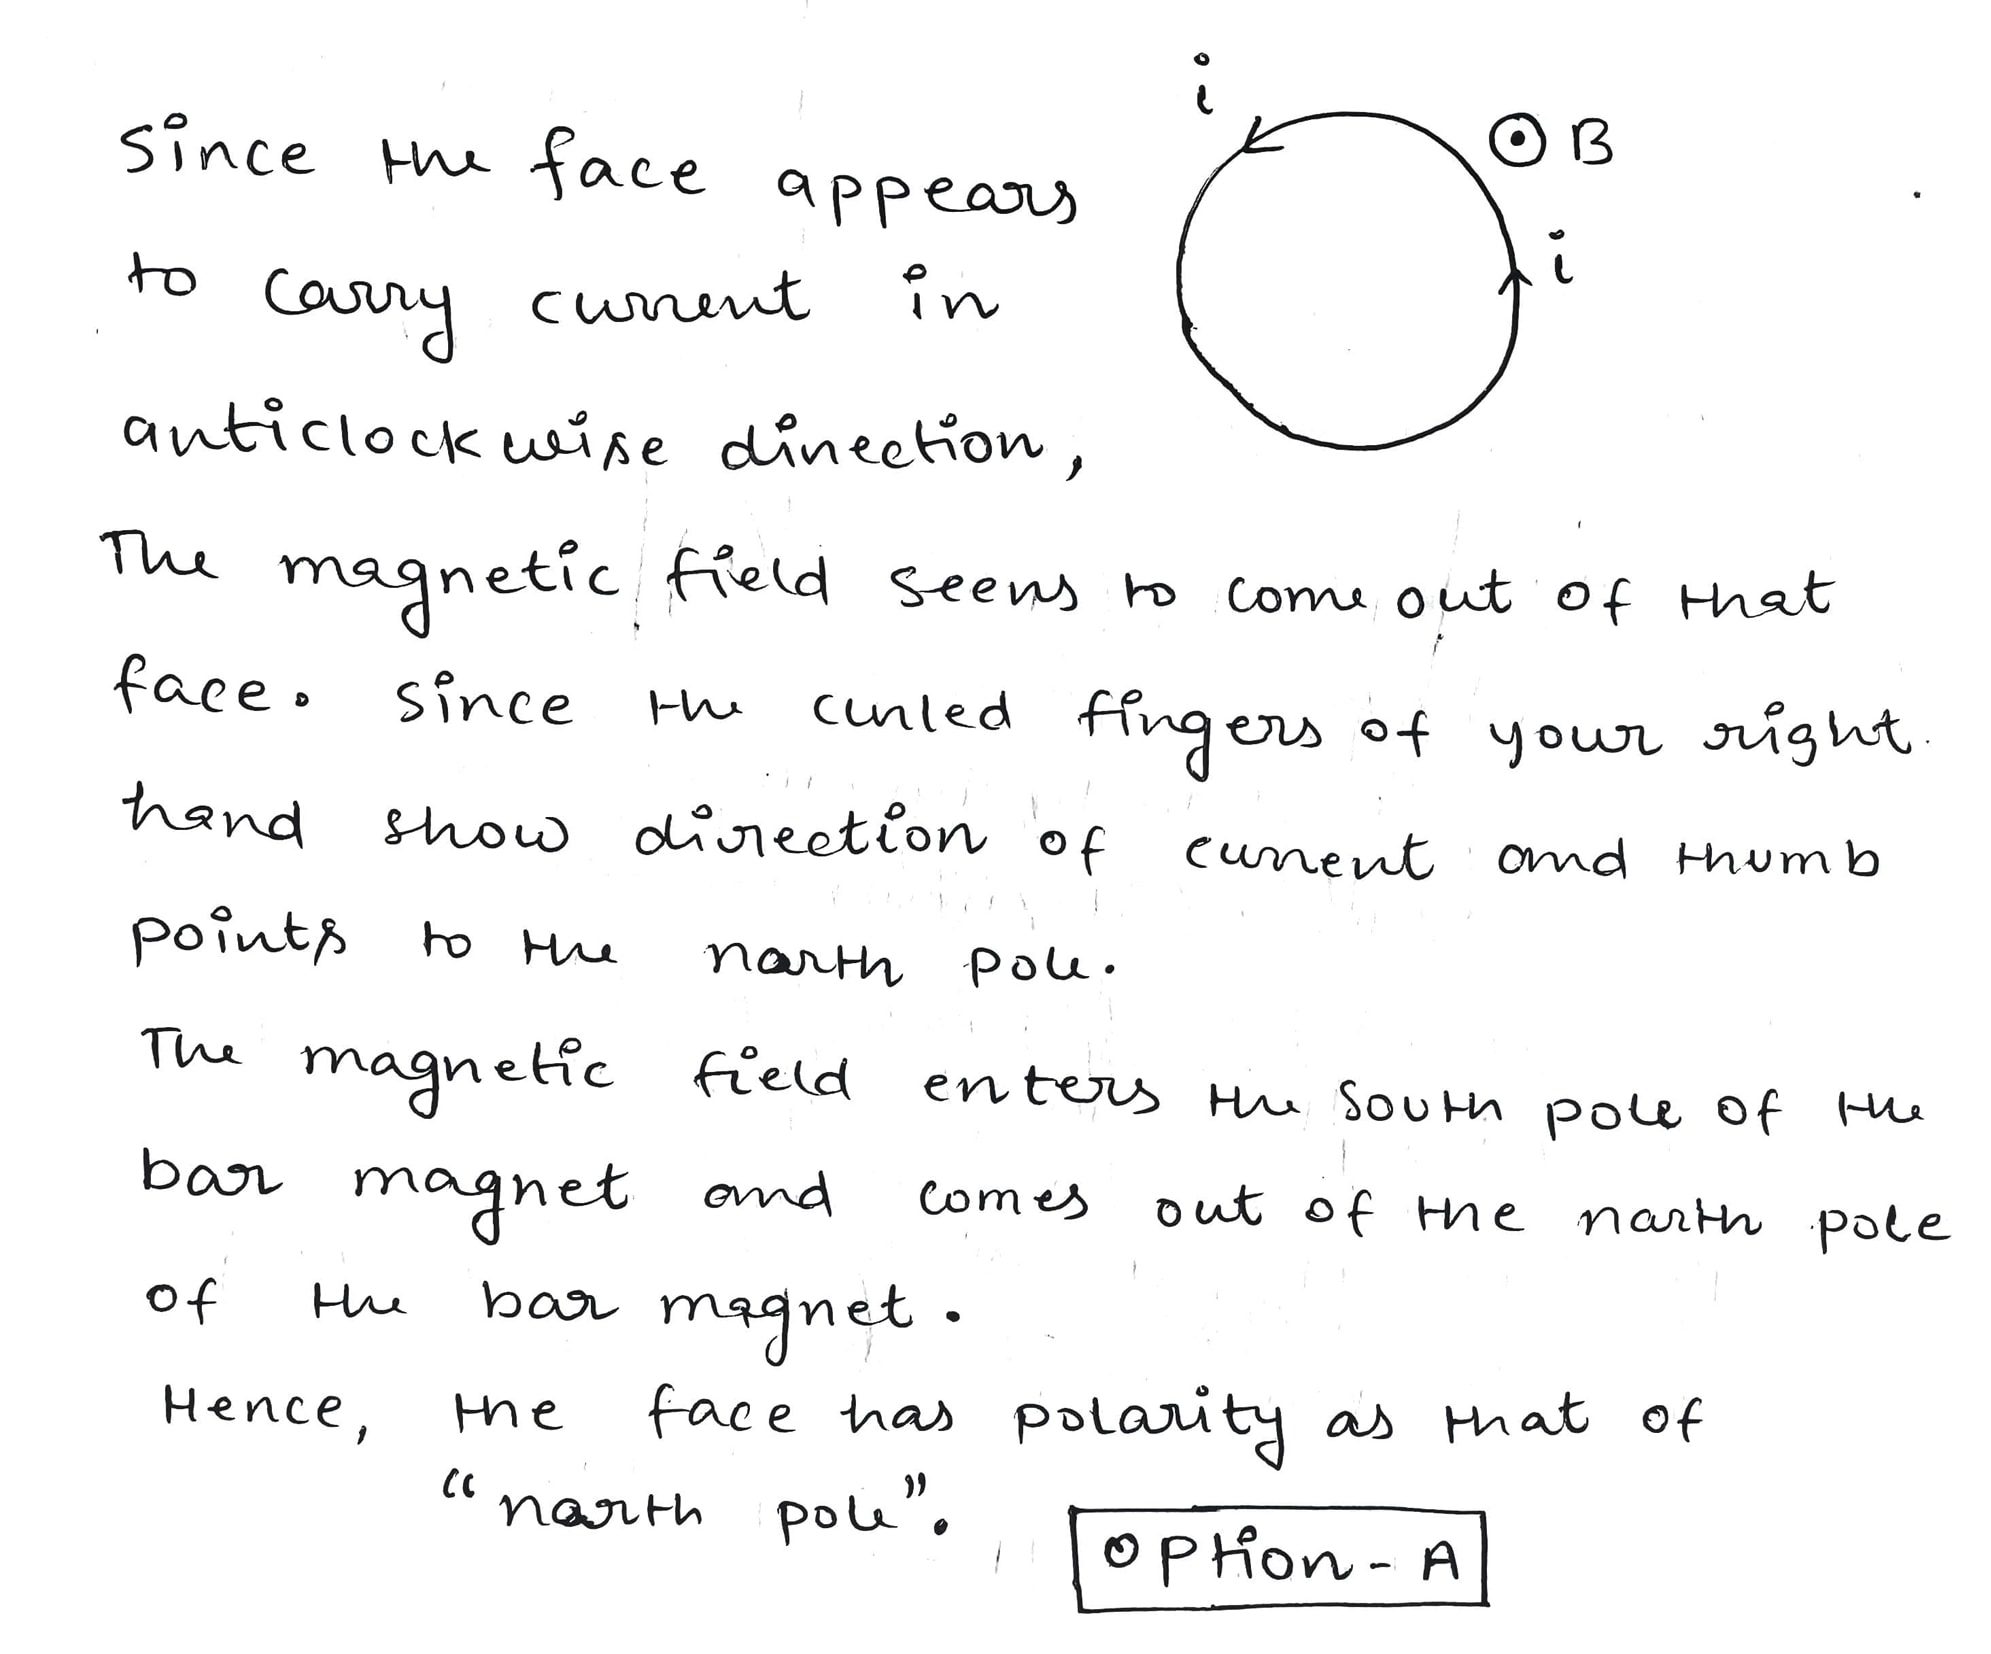 i
since the face appears
⊙ B
to carry current in
i
anticlockwise direction,
The magnetic field seems to come out of that
face. since the curled fingers of your right
hand show direction of current and thumb
points to the north pole.
The magnetic field enters the south pole of the
bar magnet and comes out of the north pole
of the bar magnet.
Hence, the face has polarity as that of
"north pole".
option-A